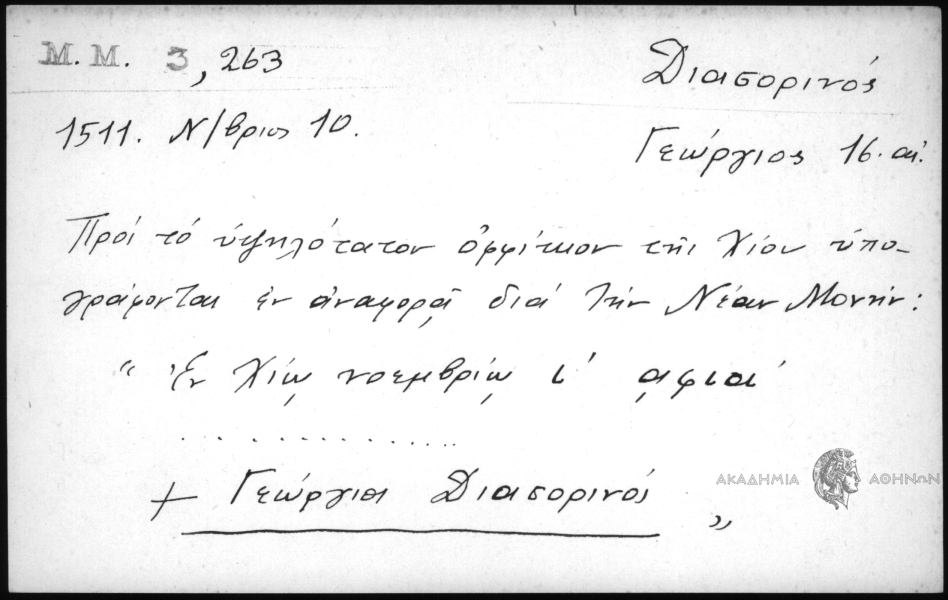 Μ. Μ. 3, 263
Διασορινός
1511. Ν/βριος 10.
Γεώργιος 16. αἰ.
Πρὸς τὸ ὑψηλότατον ὀφφίτκιον τῆς Χίου ὑπο-
γράφονται ἐν ἀναφορᾷ διὰ τὴν Νέαν Μονήν:
“ Ἐν Χίῳ νοεμβρίῳ ι΄ ͵αφια΄
. . . . . . . . . . . . . . .
+ Γεώργιος Διασορινός „
ΑΚΑΔΗΜΙΑ ΑΘΗΝΩΝ